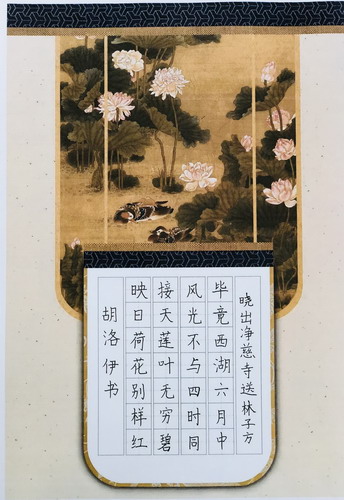 晓出净慈寺送林子方
毕竟西湖六月中
风光不与四时同
接天莲叶无穷碧
映日荷花别样红
胡洛伊书